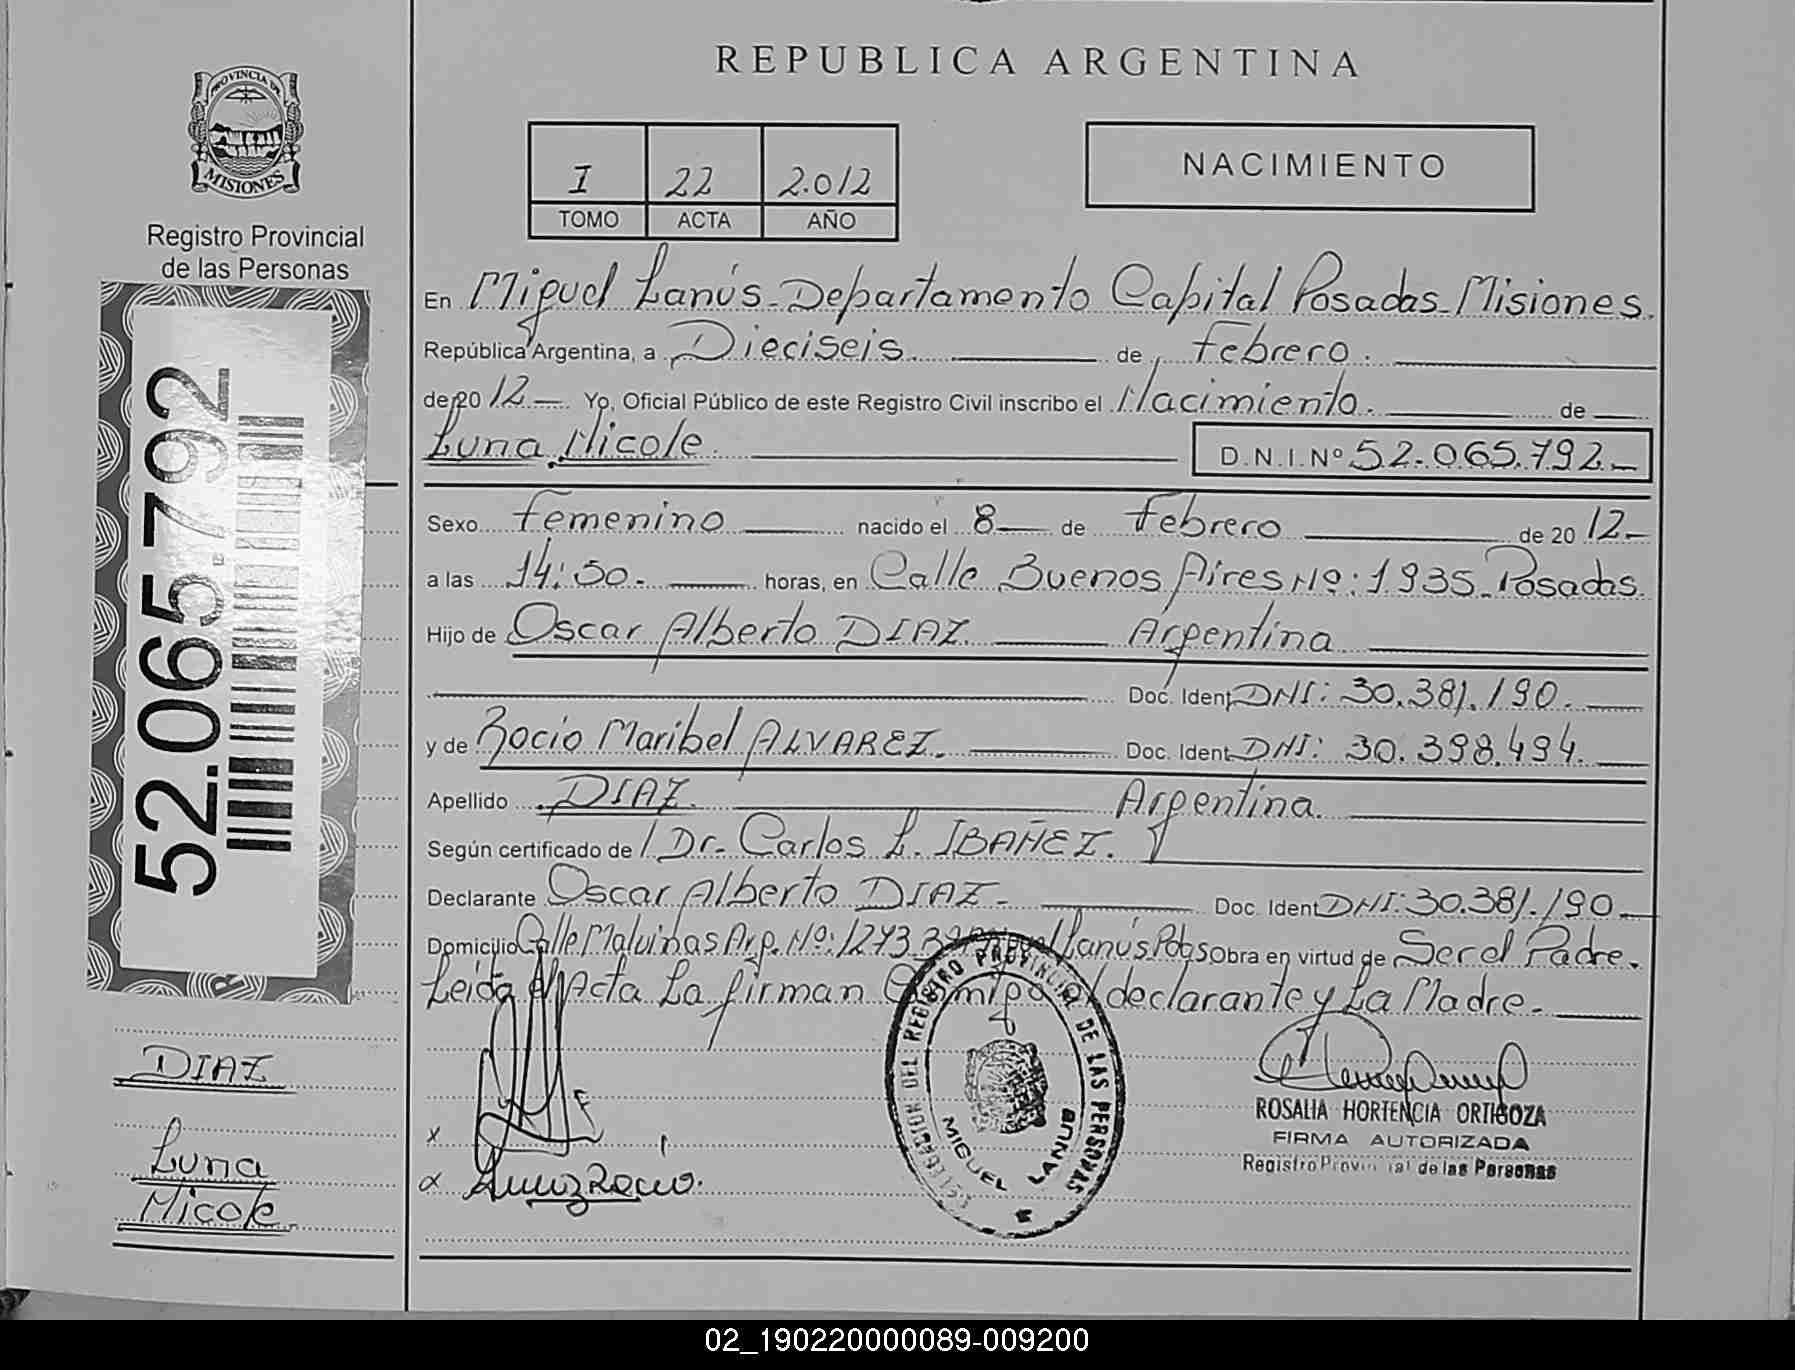 REPUBLICA ARGENTINA
PROVINCIA DE
MISIONES
Registro Provincial
de las Personas
I 22 2.012
TOMO ACTA AÑO
NACIMIENTO
52.065.792
En Miguel Lanús-Departamento Capital Posadas-Misiones.
República Argentina, a Dieciseis. de Febrero.
de 20 12 Yo, Oficial Público de este Registro Civil inscribo el Nacimiento. de
Luna Nicole.
D.N.I.Nº 52.065.792
Sexo Femenino nacido el 8 de Febrero de 20 12
a las 14:50. horas, en Calle Buenos Aires Nº: 1.935-Posadas.
Hijo de Oscar Alberto DIAZ. Argentina
Doc. Ident DNI: 30.381.190.
y de Rocio Maribel ALVAREZ. Doc. Ident DNI: 30.398.494.
Apellido DIAZ. Argentina.
Según certificado de Dr. Carlos L. IBAÑEZ.
Declarante Oscar Alberto DIAZ- Doc. Ident DNI: 30.381.190
Domicilio Calle Malvinas Arg. Nº: 1273 Lanús Pdas Obra en virtud de Ser el Padre.
Leída el Acta La firman Conmigo el declarante y La Madre.
DIAZ
Luna
Nicole
DEL REGISTRO PROVINCIAL DE LAS PERSONAS
MIGUEL LANUS
x
x
ROSALIA HORTENCIA ORTIGOZA
FIRMA AUTORIZADA
Registro Provincial de las Personas
02_190220000089-009200